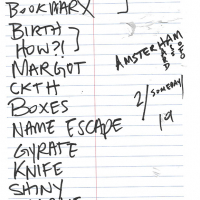 BOOKMARX
BIRTH
HOW?!
MARGOT
CKTH
BOXES
NAME ESCAPE
GYRATE
KNIFE
SHINY
AMSTERHAM
2/SOMEDAY
19